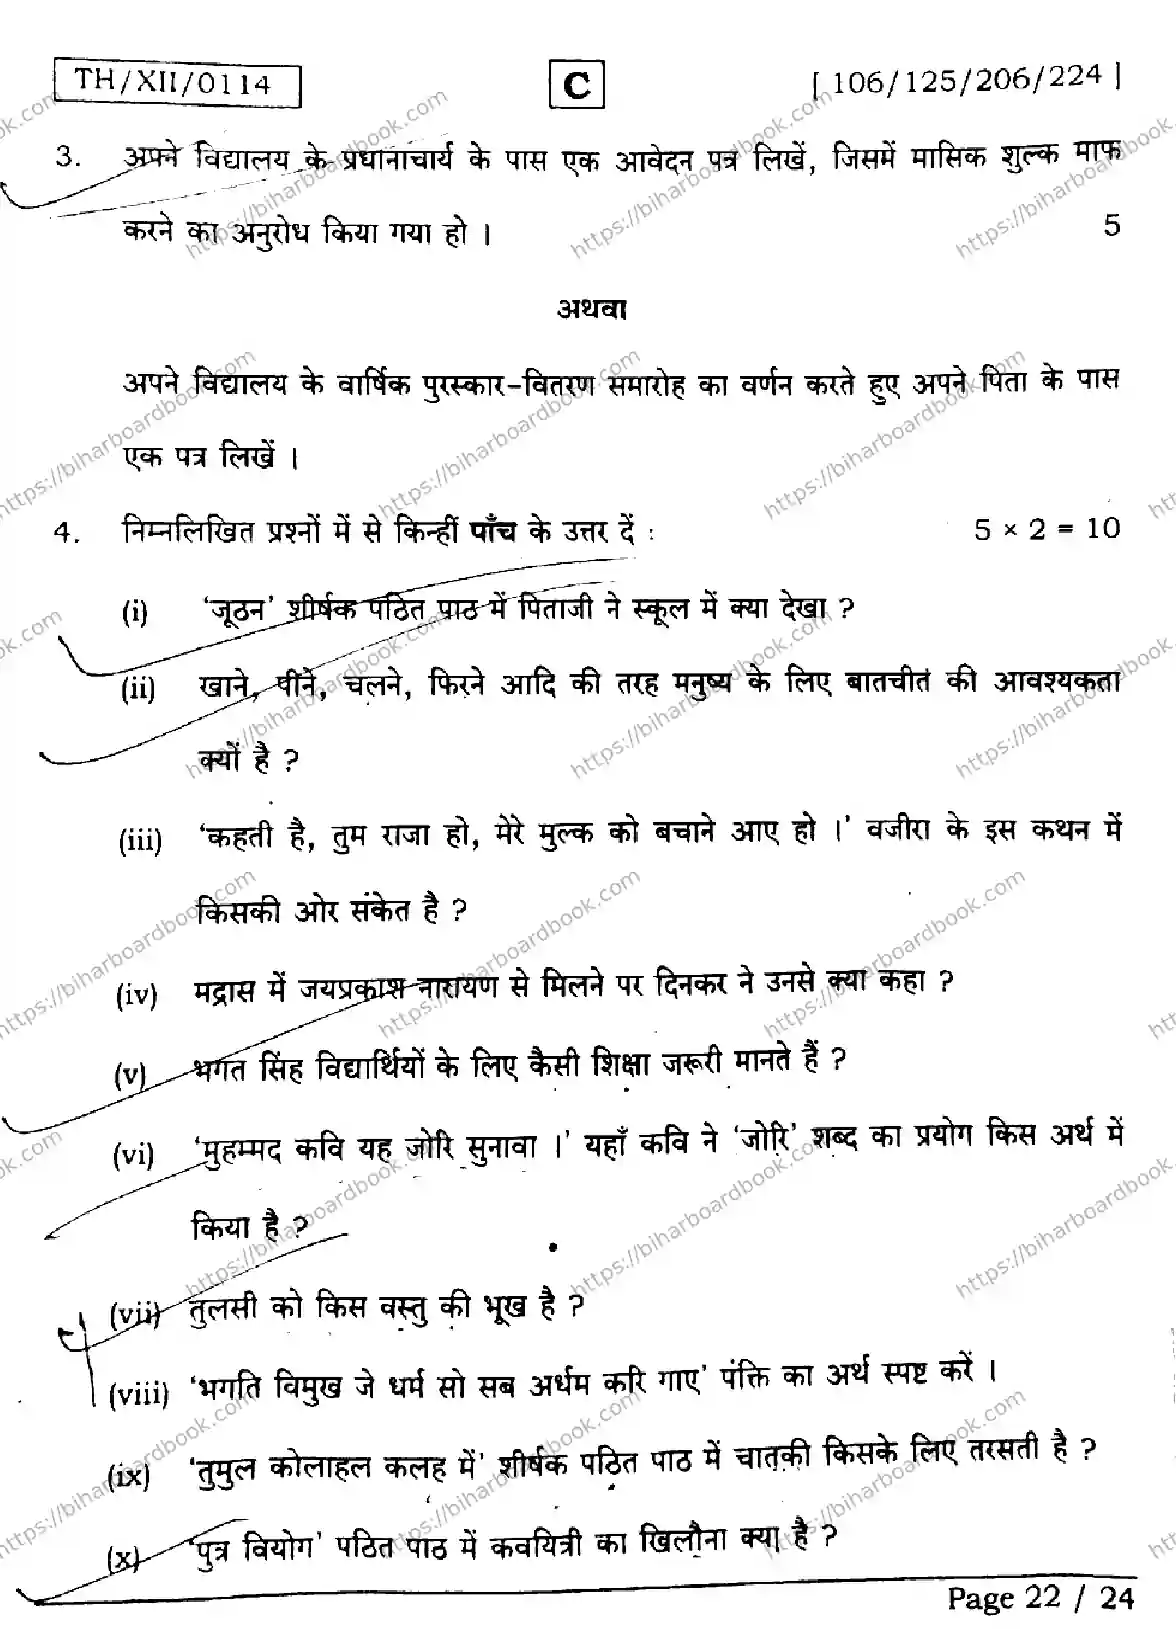 TH/XII/0114 C [ 106/125/206/224 ]
3. अपने विद्यालय के प्रधानाचार्य के पास एक आवेदन पत्र लिखें, जिसमें मासिक शुल्क माफ
करने का अनुरोध किया गया हो । 5
अथवा
अपने विद्यालय के वार्षिक पुरस्कार-वितरण समारोह का वर्णन करते हुए अपने पिता के पास
एक पत्र लिखें ।
4. निम्नलिखित प्रश्नों में से किन्हीं पाँच के उत्तर दें : 5 × 2 = 10
(i) 'जूठन' शीर्षक पठित पाठ में पिताजी ने स्कूल में क्या देखा ?
(ii) खाने, पीने, चलने, फिरने आदि की तरह मनुष्य के लिए बातचीत की आवश्यकता
क्यों है ?
(iii) 'कहती है, तुम राजा हो, मेरे मुल्क को बचाने आए हो ।' वजीरा के इस कथन में
किसकी ओर संकेत है ?
(iv) मद्रास में जयप्रकाश नारायण से मिलने पर दिनकर ने उनसे क्या कहा ?
(v) भगत सिंह विद्यार्थियों के लिए कैसी शिक्षा जरूरी मानते हैं ?
(vi) 'मुहम्मद कवि यह जोरि सुनावा ।' यहाँ कवि ने 'जोरि' शब्द का प्रयोग किस अर्थ में
किया है ?
(vii) तुलसी को किस वस्तु की भूख है ?
(viii) 'भगति विमुख जे धर्म सो सब अर्धम करि गाए' पंक्ति का अर्थ स्पष्ट करें ।
(ix) 'तुमुल कोलाहल कलह में' शीर्षक पठित पाठ में चातकी किसके लिए तरसती है ?
(x) 'पुत्र वियोग' पठित पाठ में कवयित्री का खिलौना क्या है ?
Page 22 / 24
https://biharboardbook.com